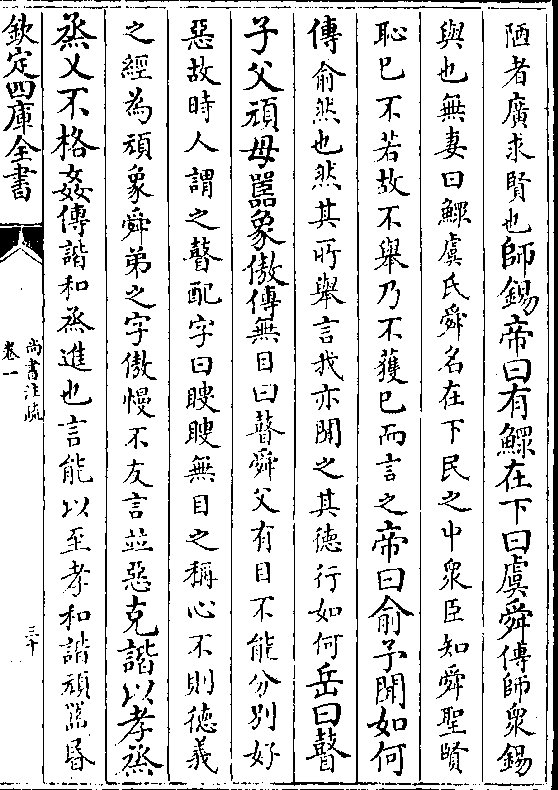 陋者廣求賢也師錫帝曰有鰥在下曰虞舜傳師衆錫
與也無妻曰鰥虞氏舜名在下民之中衆臣知舜聖賢
恥已不若故不舉乃不獲已而言之帝曰俞予聞如何
傳俞然也然其所舉言我亦聞之其德行如何岳曰瞽
子父頑母嚚象傲傳無目曰瞽舜父有目不能分别好
惡故時人謂之瞽配字曰瞍瞍無目之稱心不則德義
之經為頑象舜弟之字傲慢不友言並惡克諧以孝烝
烝乂不格姦傳諧和烝進也言能以至孝和諧頑嚚昬
欽定四庫全書
尚書注疏
卷一
三十